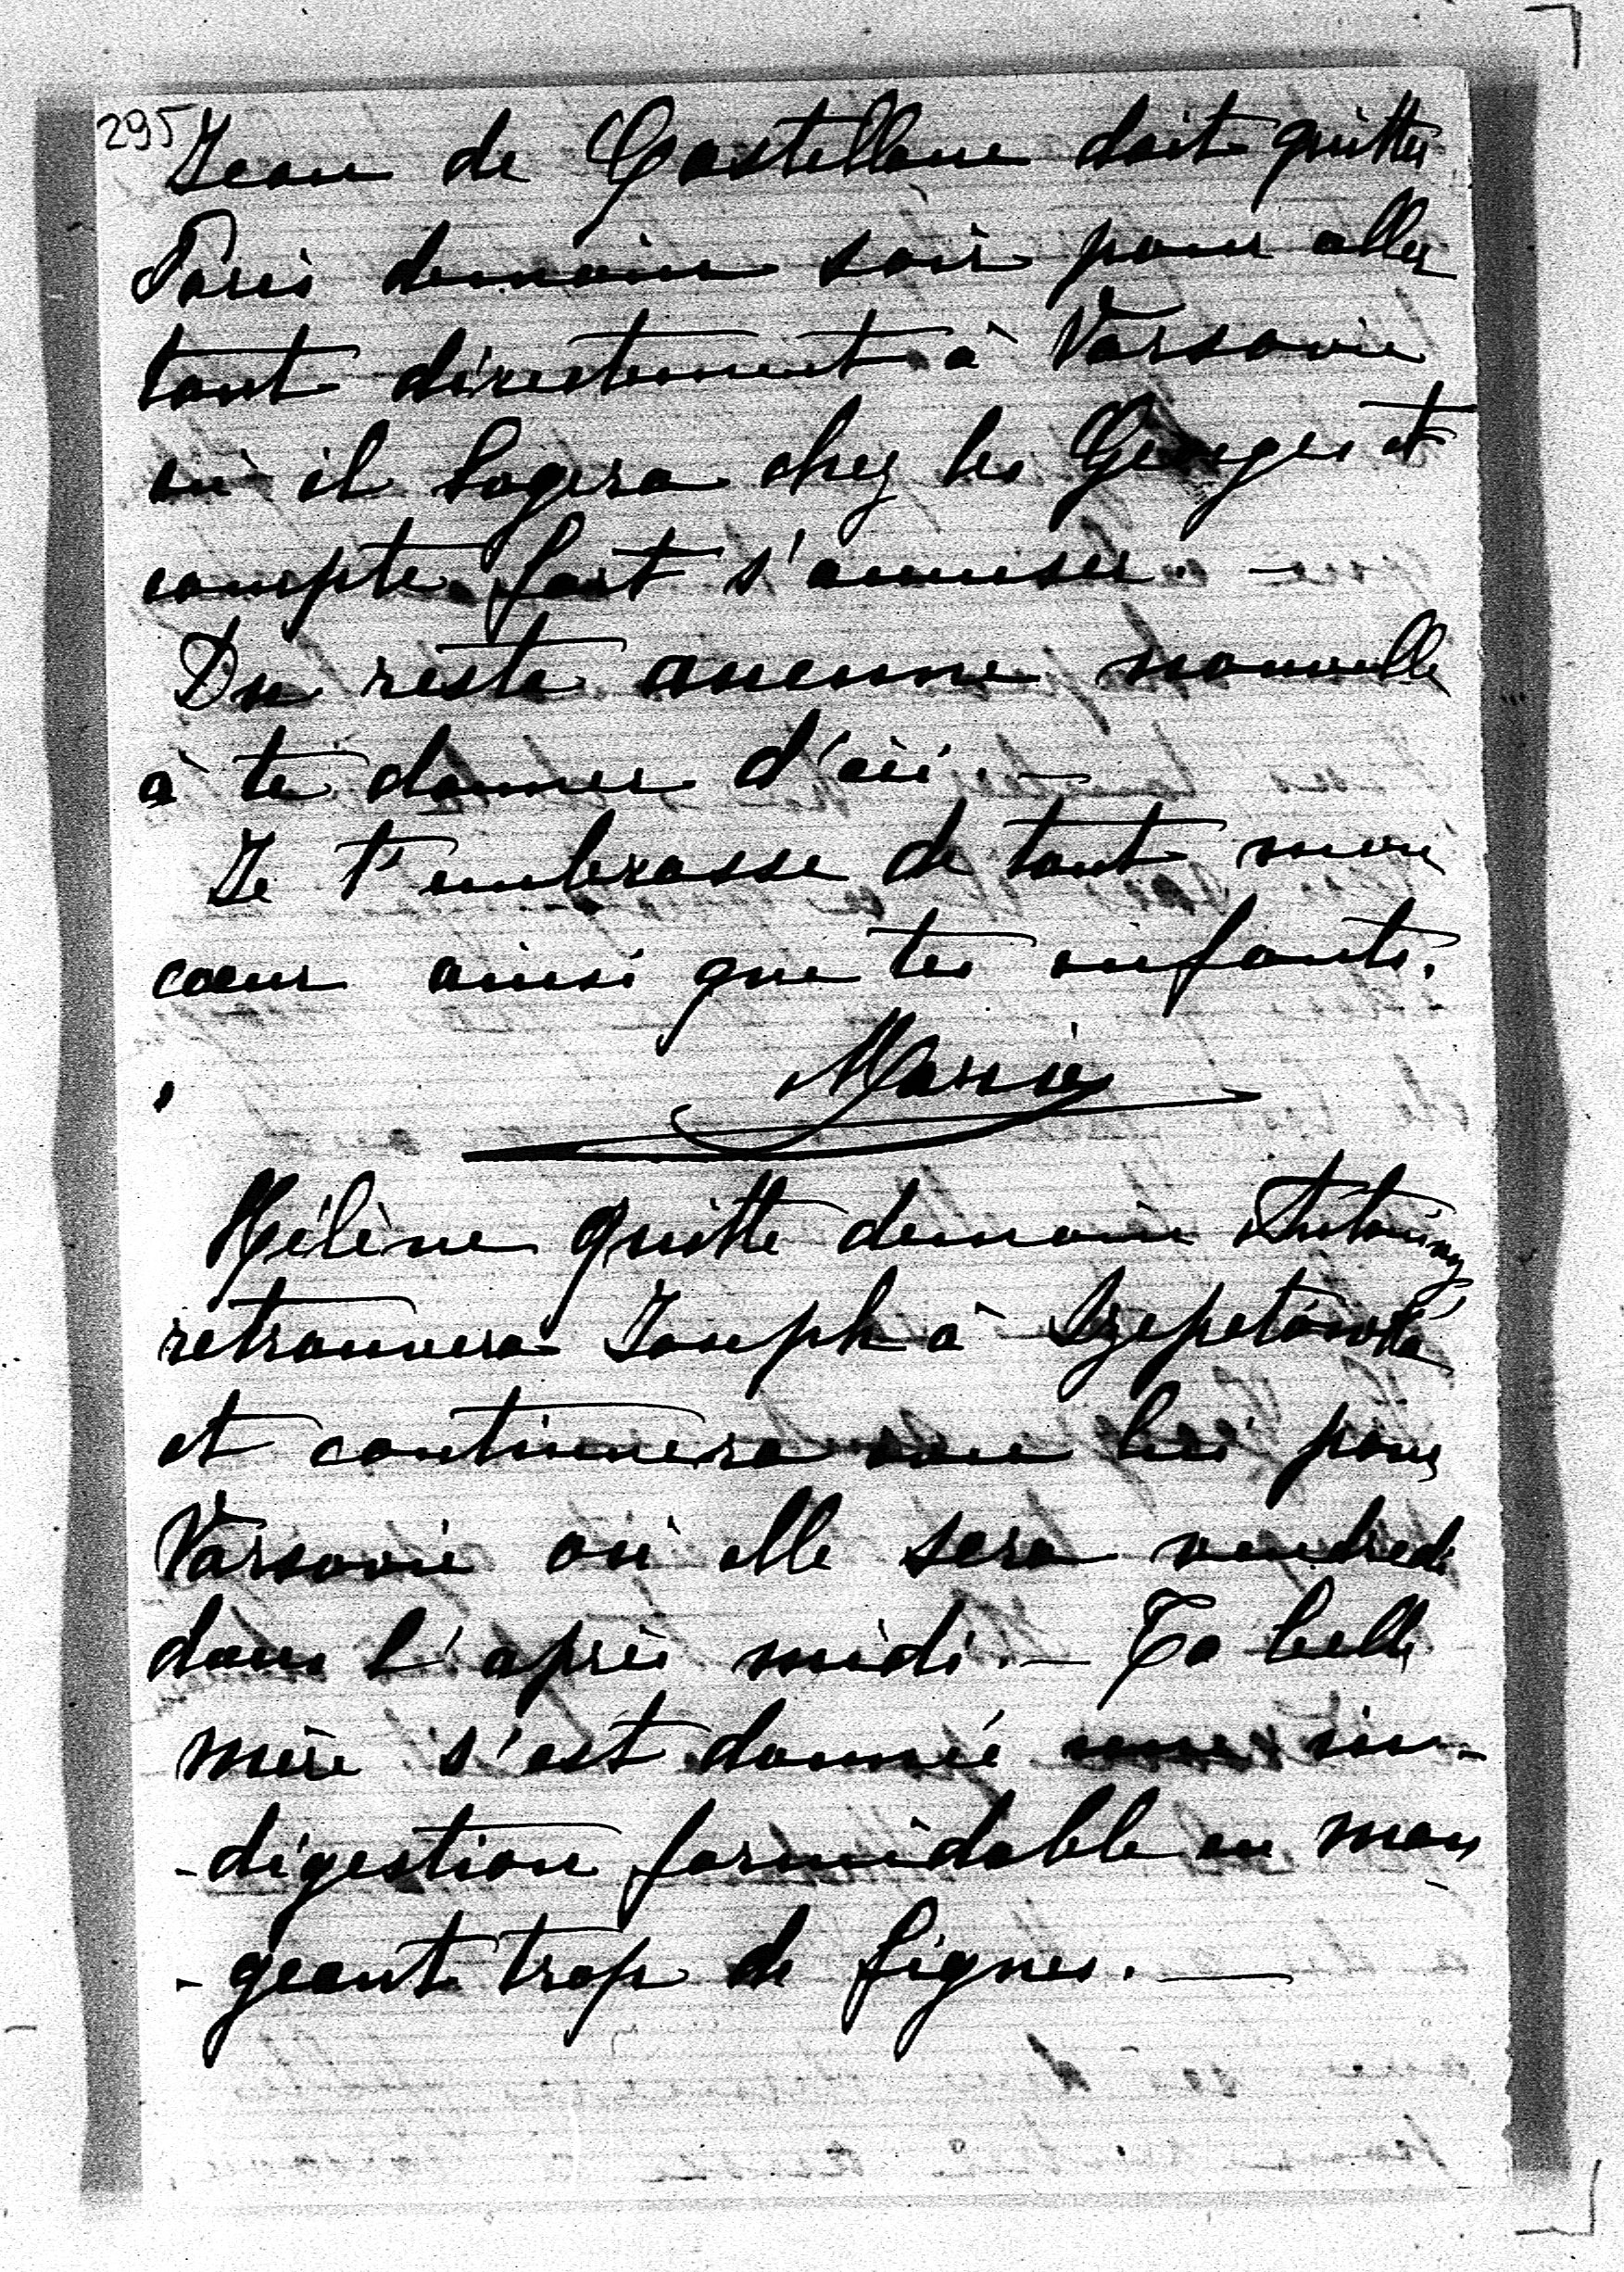 295
Jean de Castellane doit quitter
Paris demain soir pour aller
tout directement à Varsovie
où il logera chez les Georges et
compte fort s'amuser. —
Du reste aucune nouvelle
à te donner d'ici. —
Je t'embrasse de tout mon
cœur ainsi que tes enfants.
Marie
Hélène quitte demain Antoniny
retrouvera Joseph à Szepetówka
et continuera avec lui pour
Varsovie où elle sera vendredi
dans l'après midi. — Ta belle
mère s'est donnée une in-
-digestion formidable en man
-geant trop de figues. —